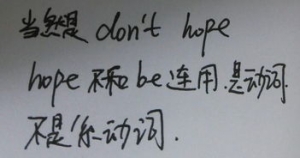 当然是 don't hope
hope 不和 be 连用.是动词.
不是系动词.